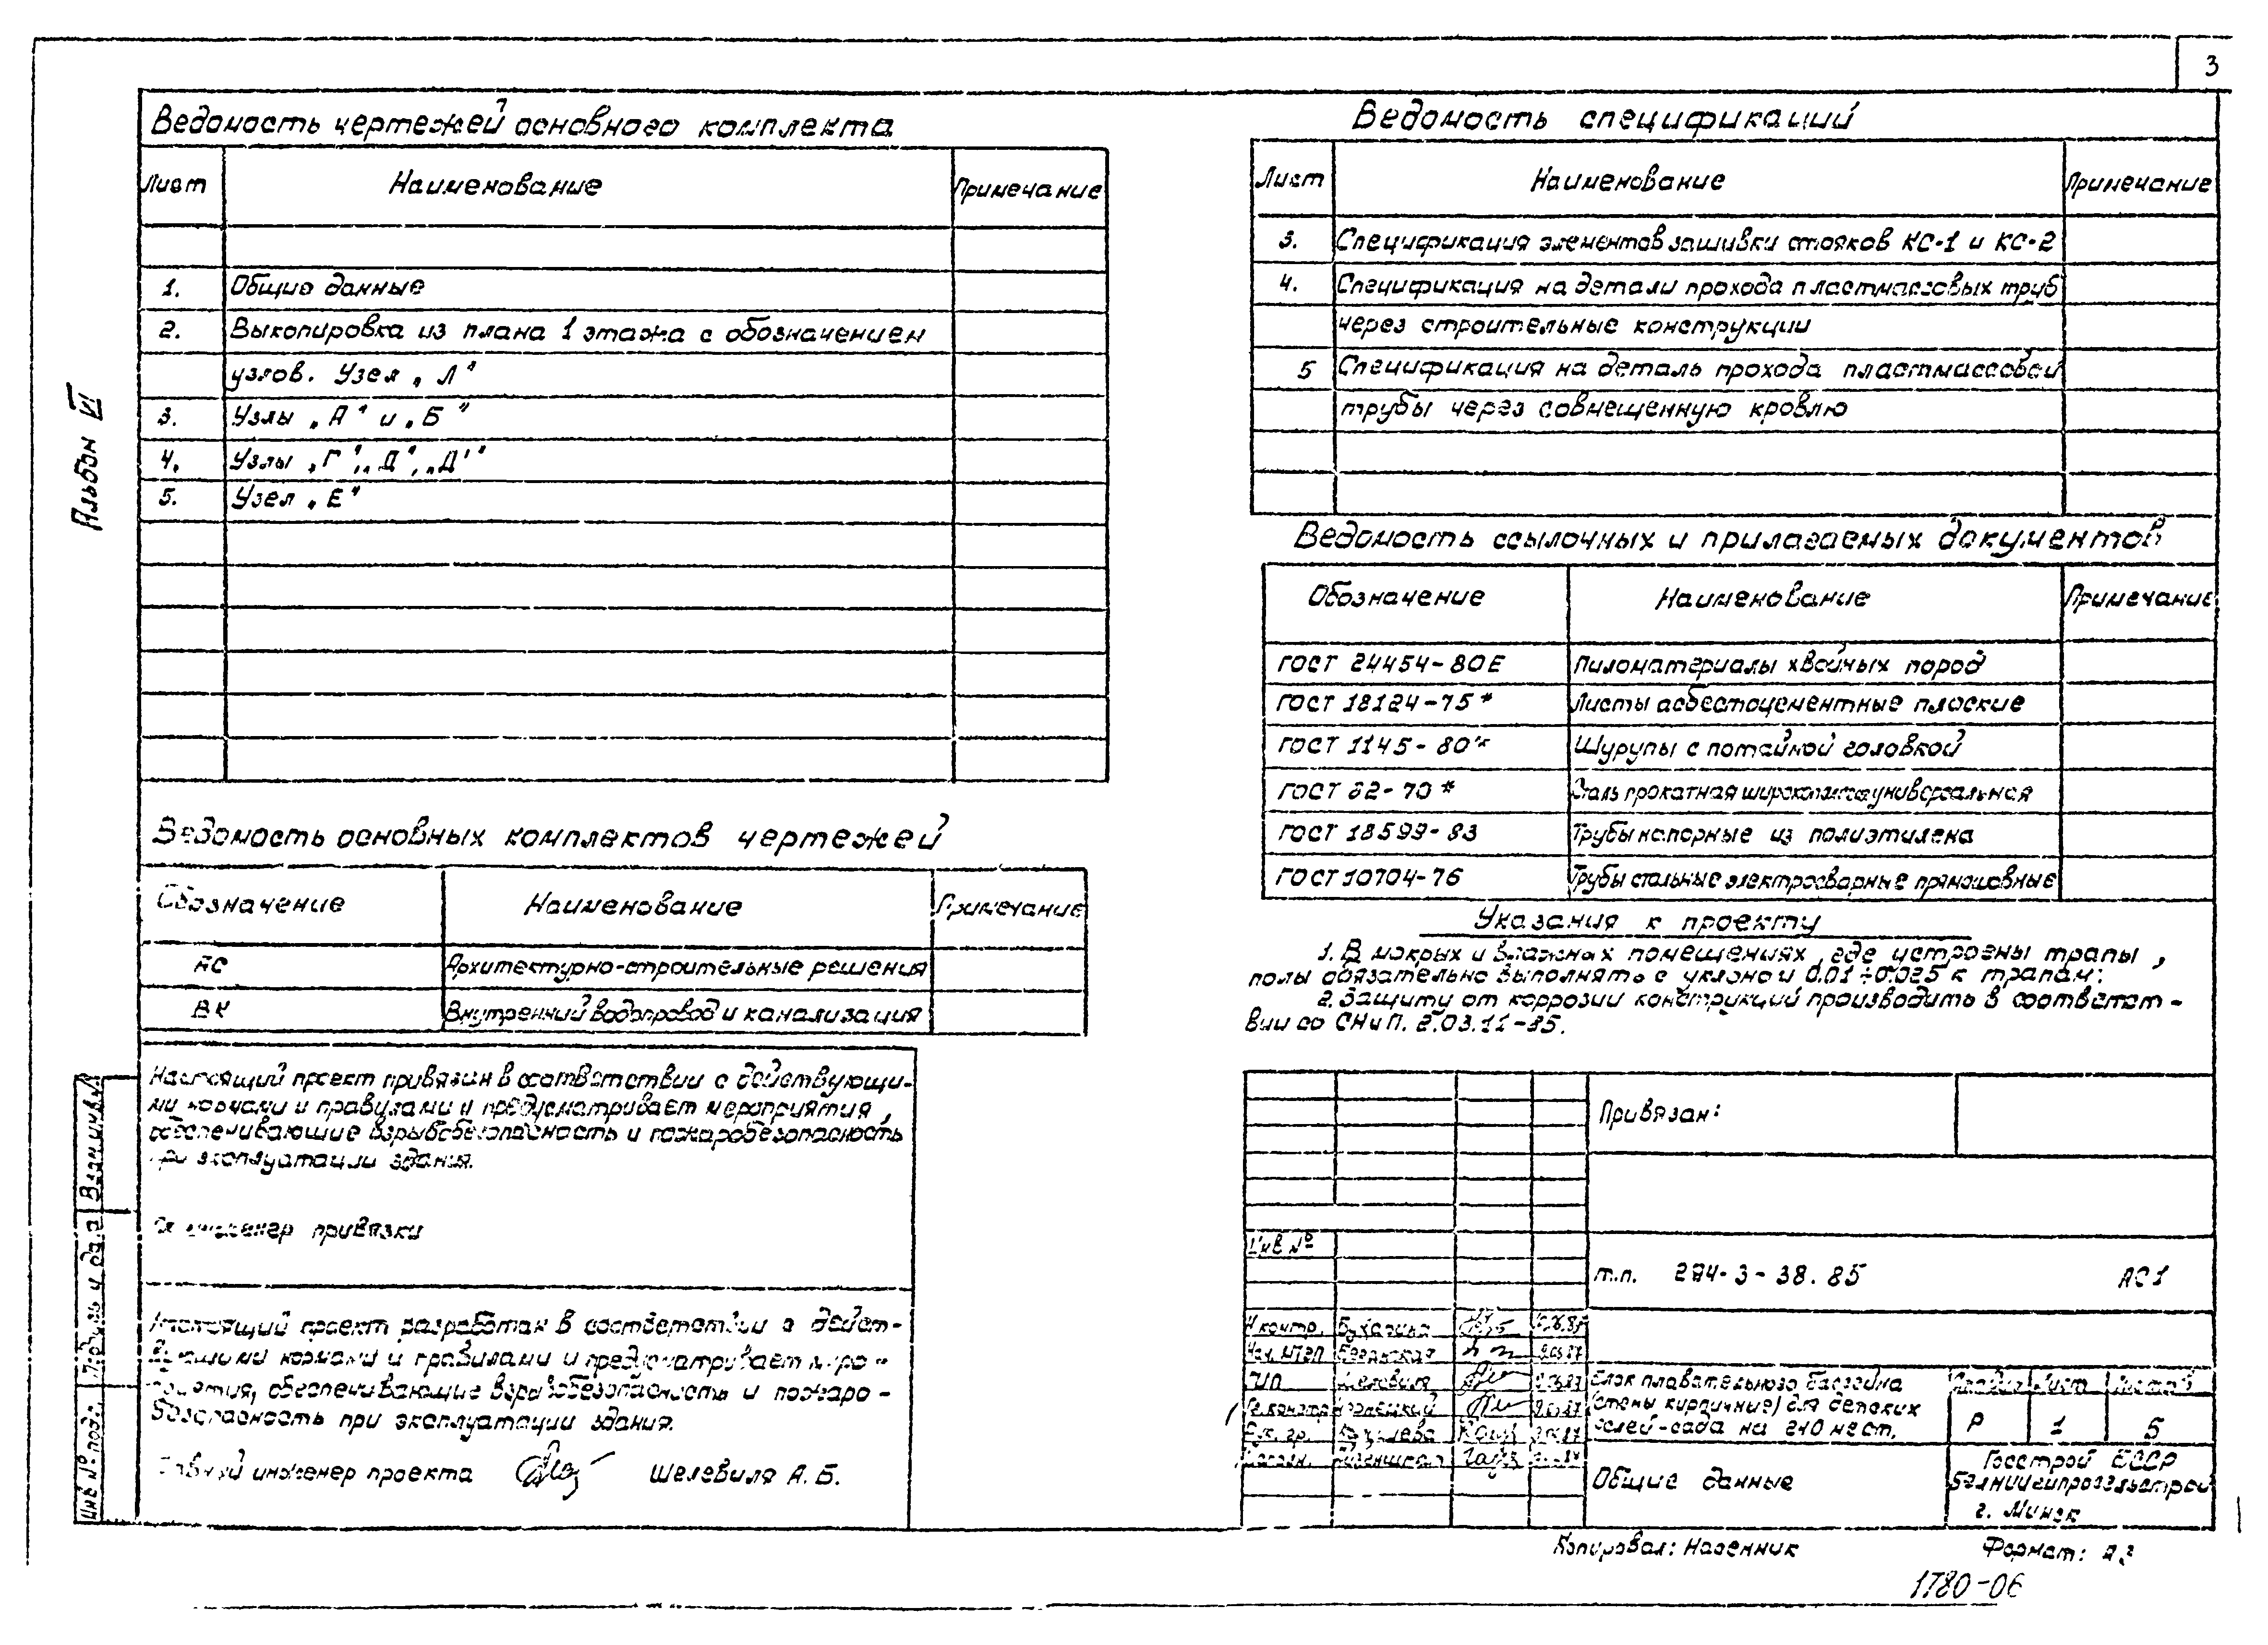 3
Альбом VI
Ведомость чертежей основного комплекта
Лист Наименование Примечание
1. Общие данные
2. Выкопировка из плана 1 этажа с обозначением
узлов. Узел „Л"
3. Узлы „А" и „Б"
4. Узлы „Г", „Д", „Д'"
5. Узел „Е"
Ведомость основных комплектов чертежей
Обозначение Наименование Примечание
АС Архитектурно-строительные решения
ВК Внутренний водопровод и канализация
Настоящий проект привязан в соответствии с действующи-
ми нормами и правилами и предусматривает мероприятия,
обеспечивающие взрывобезопасность и пожаробезопасность
при эксплуатации здания.
Гл. инженер привязки
Настоящий проект разработан в соответствии с дейст-
вующими нормами и правилами и предусматривает меро-
приятия, обеспечивающие взрывобезопасность и пожаро-
безопасность при эксплуатации здания.
Главный инженер проекта Шелевиля А. Б.
Инв № подл. Подпись и дата Взам инв №
Ведомость спецификаций
Лист Наименование Примечание
3. Спецификация элементов зашивки стояков КС-1 и КС-2
4. Спецификация на детали прохода пластмассовых труб
через строительные конструкции
5 Спецификация на деталь прохода пластмассовой
трубы через совмещенную кровлю
Ведомость ссылочных и прилагаемых документов
Обозначение Наименование Примечание
ГОСТ 24454-80Е Пиломатериалы хвойных пород
ГОСТ 18124-75* Листы асбестоцементные плоские
ГОСТ 1145-80* Шурупы с потайной головкой
ГОСТ 82-70* Сталь прокатная широкополосная универсальная
ГОСТ 18599-83 Трубы напорные из полиэтилена
ГОСТ 10704-76 Трубы стальные электросварные прямошовные
Указания к проекту
1. В мокрых и влажных помещениях, где устроены трапы,
полы обязательно выполнять с уклоном 0.01÷0.025 к трапам.
2. Защиту от коррозии конструкций производить в соответст-
вии со СНиП. 2.03.11-85.
Привязан:
Инв №
т.п. 294-3-38.85 АС1
Н контр. Бухарина
Нач. МТЭП
ГИП Шелевиля
Гл. констр
Рук. гр.
Блок плавательного бассейна
(стены кирпичные) для детских
яслей-сада на 240 мест.
Стадия Лист Листов
Р 1 5
Общие данные
Госстрой БССР
Белниигипросельстрой
г. Минск
Копировал: Насенник Формат: А3
1780-06